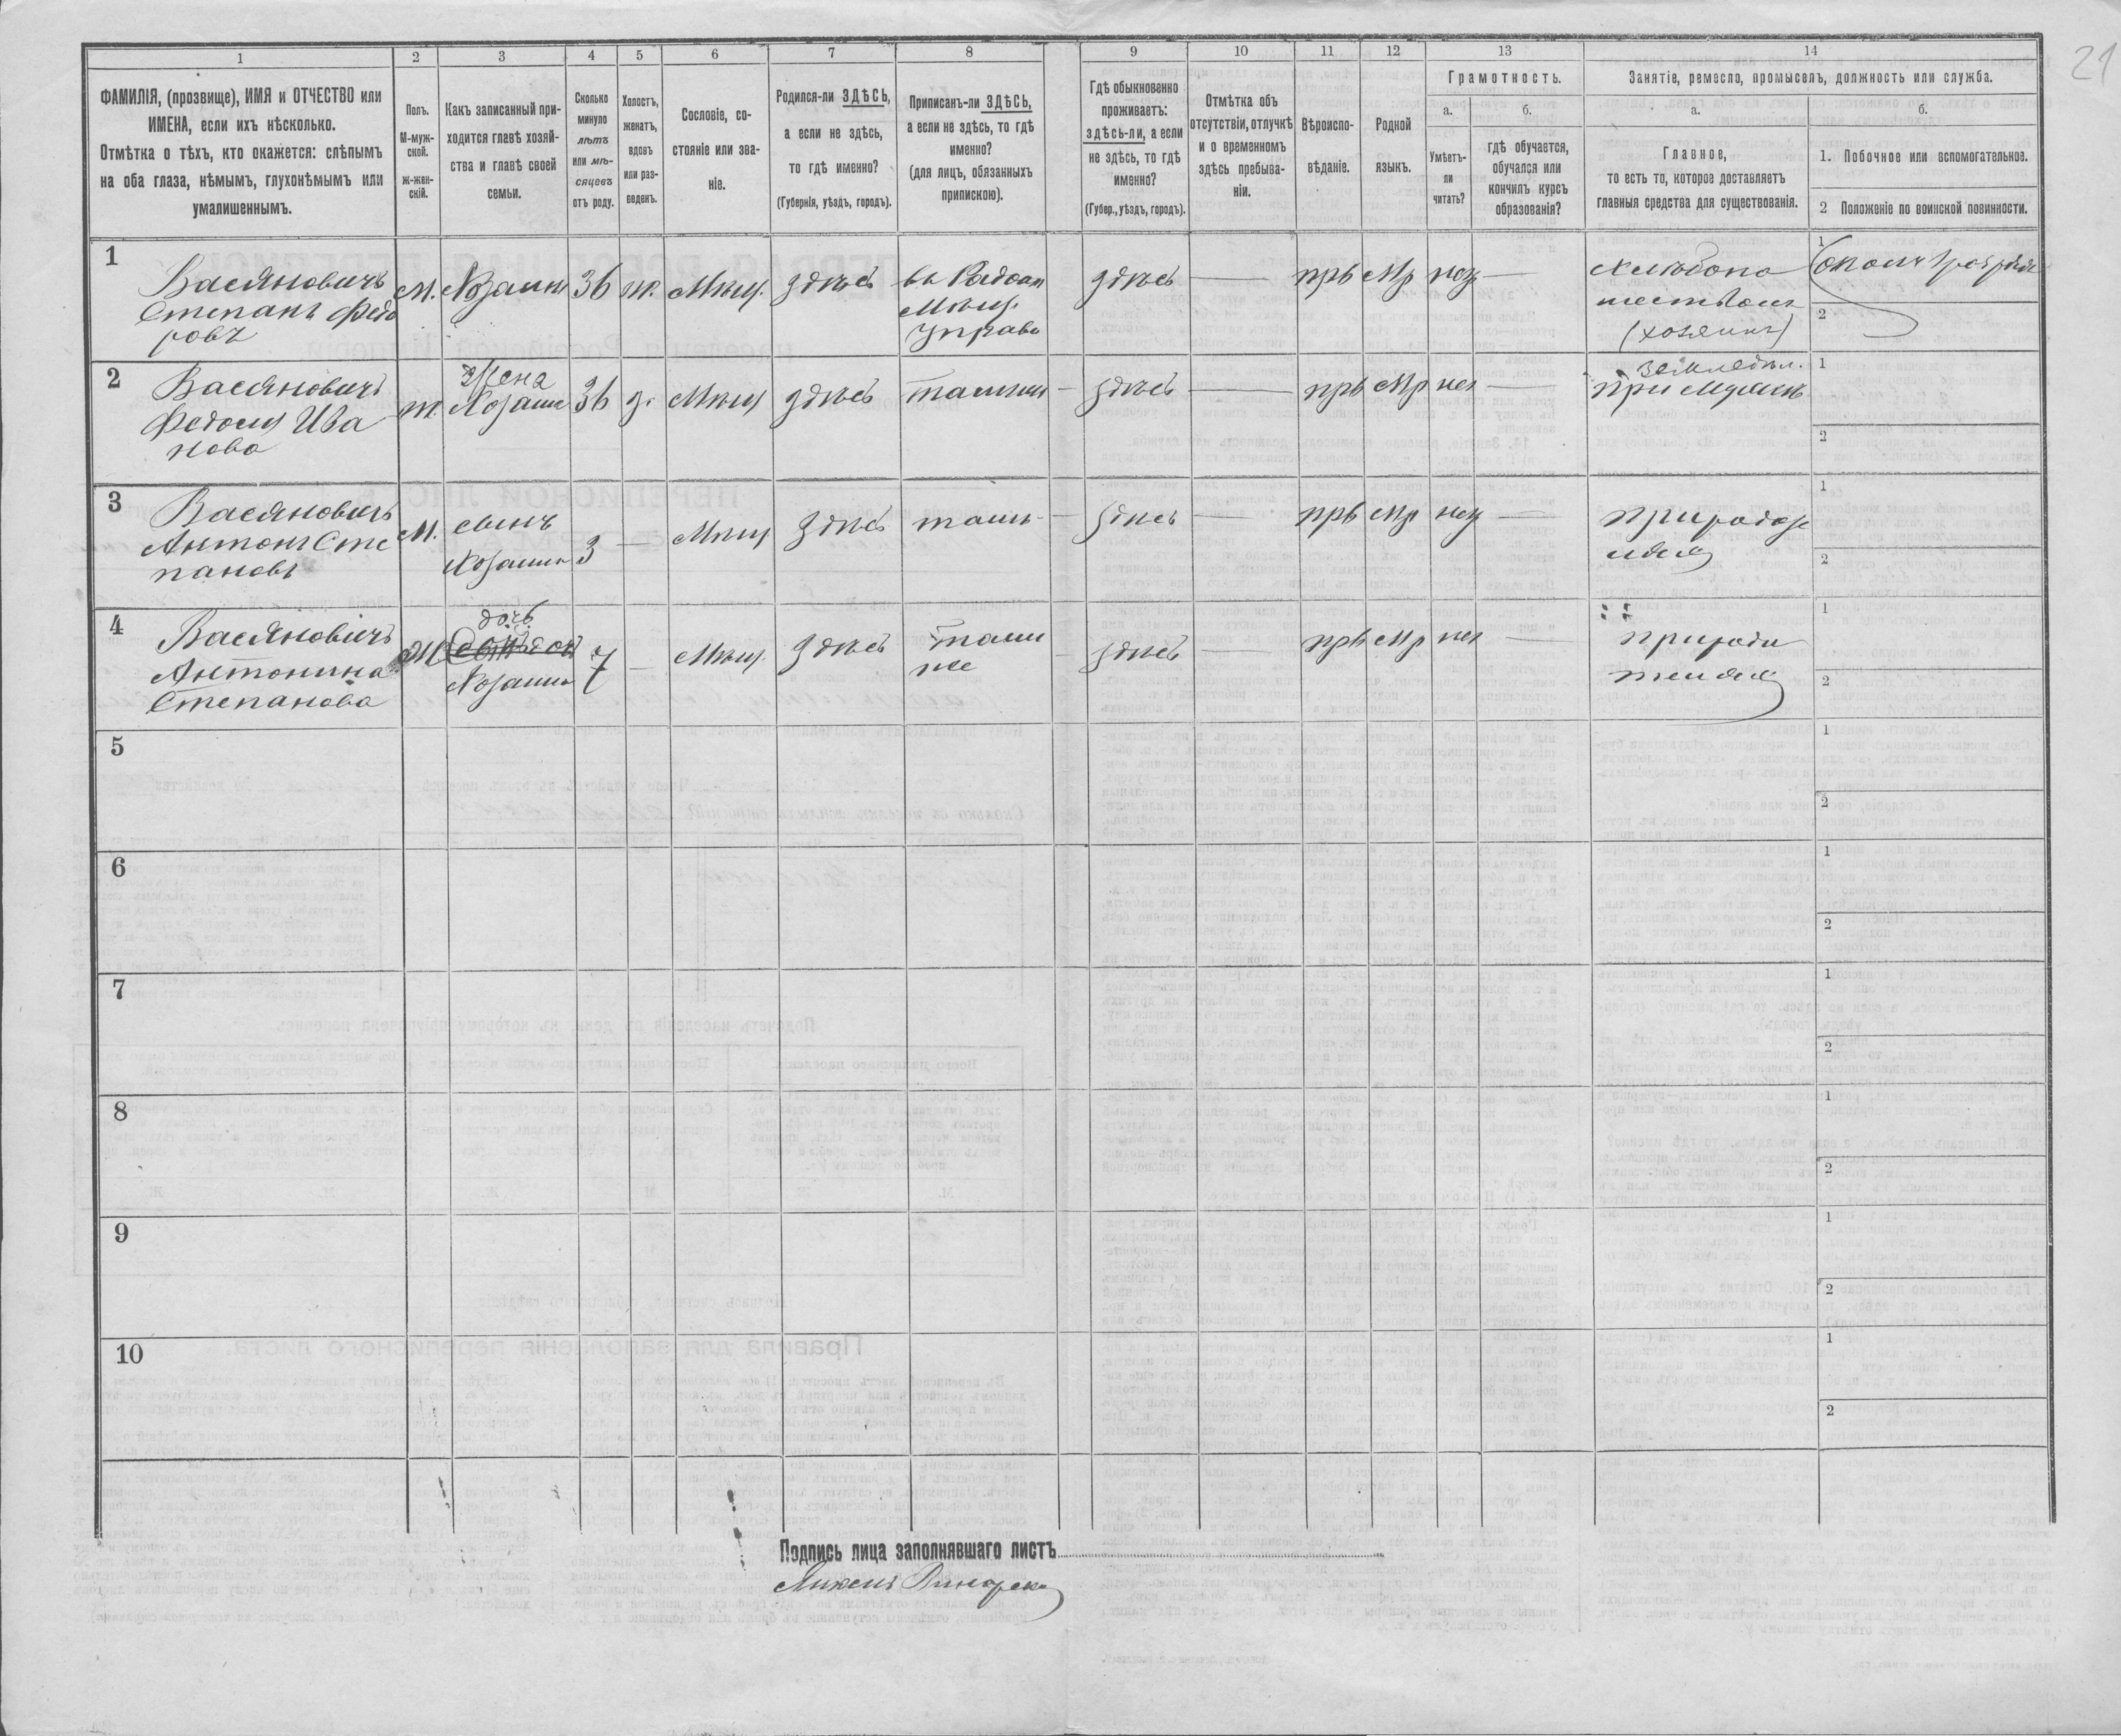 21
1
2
3
4
5
6
7
8
9
10
11
12
13
14
ФАМИЛІЯ, (прозвище), ИМЯ и ОТЧЕСТВО или
ИМЕНА, если ихъ нѣсколько.
Отмѣтка о тѣхъ, кто окажется: слѣпымъ
на оба глаза, нѣмымъ, глухонѣмымъ или
умалишеннымъ.
Полъ.
М-муж-
ской.
ж-жен-
скій.
Какъ записанный при-
ходится главѣ хозяй-
ства и главѣ своей
семьи.
Сколько
минуло
лѣтъ
или мѣ-
сяцевъ
отъ роду.
Холостъ,
женатъ,
вдовъ
или раз-
веденъ.
Сословіе, со-
стояніе или зва-
ніе.
Родился-ли ЗДѢСЬ,
а если не здѣсь,
то гдѣ именно?
(Губернія, уѣздъ, городъ).
Приписанъ-ли ЗДѢСЬ,
а если не здѣсь, то гдѣ
именно?
(для лицъ, обязанныхъ
припискою).
Гдѣ обыкновенно
проживаетъ:
здѣсь-ли, а если
не здѣсь, то гдѣ
именно?
(Губер., уѣздъ, городъ).
Отмѣтка объ
отсутствіи, отлучкѣ
и о временномъ
здѣсь пребыва-
ніи.
Вѣроиспо-
вѣданіе.
Родной
языкъ.
Грамотность.
а.
Умѣетъ-
ли
читать?
б.
гдѣ обучается,
обучался или
кончилъ курсъ
образованія?
Занятіе, ремесло, промыселъ, должность или служба.
а.
Главное,
то есть то, которое доставляетъ
главныя средства для существованія.
б.
1. Побочное или вспомогательное.
2 Положеніе по воинской повинности.
1
Васяновичъ
Степанъ Федо
ровъ
М.
Хозаинъ
36
ж.
Мѣщ.
здѣсь
Мѣщ.
управо
здѣсь
—
прв
Мр
—
хлѣбопа
(хозяинъ)
1
2
2
Васяновичъ
Федосия Ива
нова
ж.
жена
Хозаина
36
з.
Мѣщ
здѣсь
—
здѣсь
—
прв
Мр
нет
—
земледѣл.
при мужѣ
1
2
3
Васяновичъ
Антонъ Сте
пановъ
М.
сынъ
Хозаина
3
—
Мѣщ
здѣсь
—
здѣсь
прв
Мр
—
1
2
4
Васяновичъ
Антонина
Степанова
Ж
дочь
Хозаина
7
—
Мѣщ.
здѣсь
тамъ
же
—
здѣсь
прв
Мр
нет
—
при роди
теляхъ
1
2
5
1
2
6
1
2
7
1
2
8
1
2
9
1
2
10
1
2
Подпись лица заполнявшаго листъ